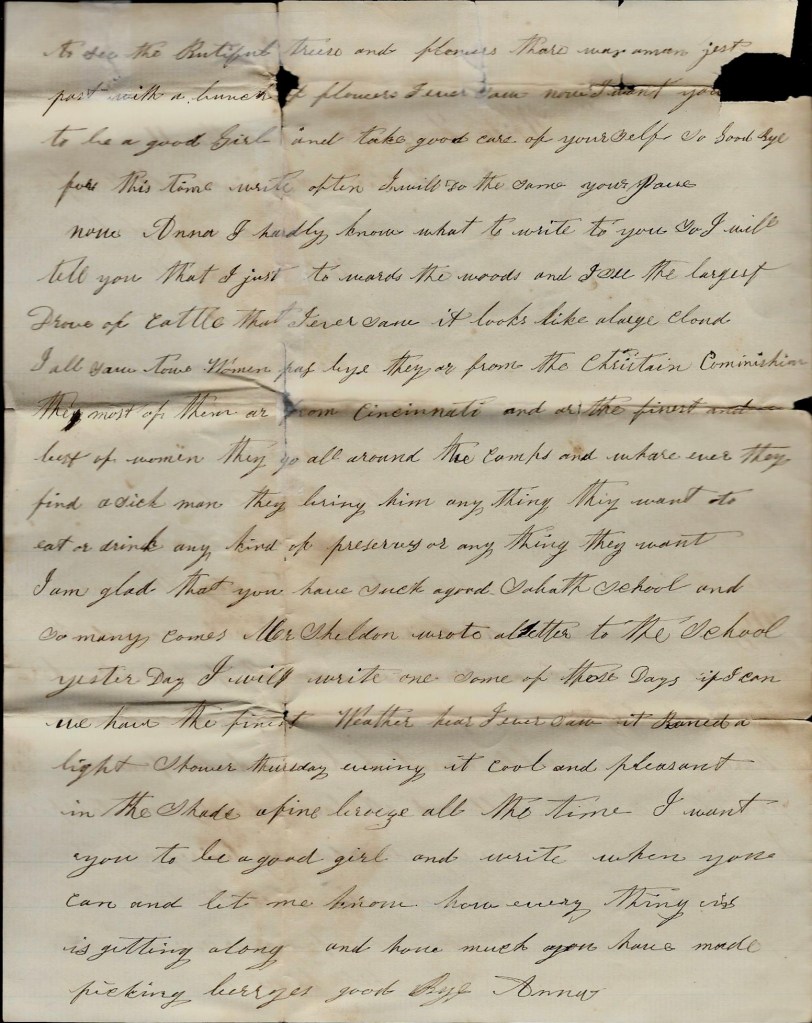 to see the Butiful treese and flowers thare was aman jest
past with a bunch of flowers I ever saw now I want you
to be a good Girl and take good care of your self so Good bye
for this time write often I will so the same your Pane
now Anna I hardly know what to write to you so I will
tell you that I just to wards the woods and I see the largest
Drove of cattle that I ever saw it looks like alarge cloud
I all saw towe Women pas bye they ar from the Christain Cominishion
they most of them ar from Cincinnati and ar the finest and
best of women they go all around the camps and whare ever they
find asick man they bring him any thing thiy want to
eat or drink any kind of preserves or any thing they want
I am glad that you have such agood Sabath School and
so many comes Mr Sheldon wrote aletter to the School
yester Day I will write one some of those Days if I can
we have the finest Weather hear I ever saw it Raned a
light Shower thursday evening it cool and pleasant
in the Shade afine breeze all the time I want
you to be agood girl and write when you
can and let me know how every thing is
is gitting along and how much you have made
picking berryes good Bye Anna